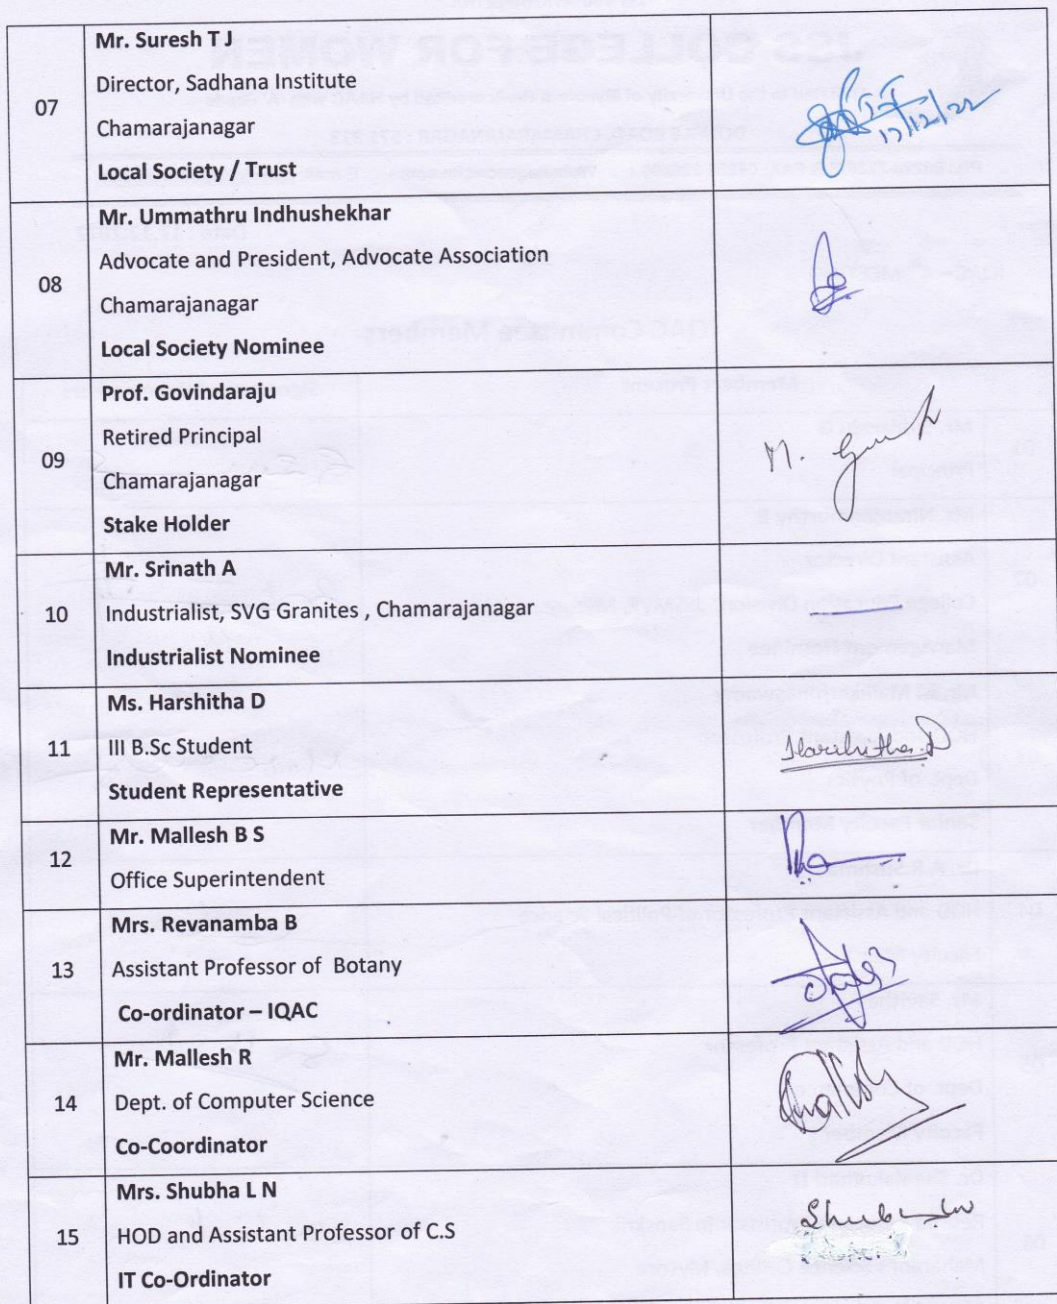 07
Mr. Suresh T J
Director, Sadhana Institute
Chamarajanagar
Local Society / Trust
17/12/22
08
Mr. Ummathru Indhushekhar
Advocate and President, Advocate Association
Chamarajanagar
Local Society Nominee
09
Prof. Govindaraju
Retired Principal
Chamarajanagar
Stake Holder
M.
10
Mr. Srinath A
Industrialist, SVG Granites , Chamarajanagar
Industrialist Nominee
11
Ms. Harshitha D
III B.Sc Student
Student Representative
Harshitha D
12
Mr. Mallesh B S
Office Superintendent
13
Mrs. Revanamba B
Assistant Professor of Botany
Co-ordinator – IQAC
14
Mr. Mallesh R
Dept. of Computer Science
Co-Coordinator
15
Mrs. Shubha L N
HOD and Assistant Professor of C.S
IT Co-Ordinator